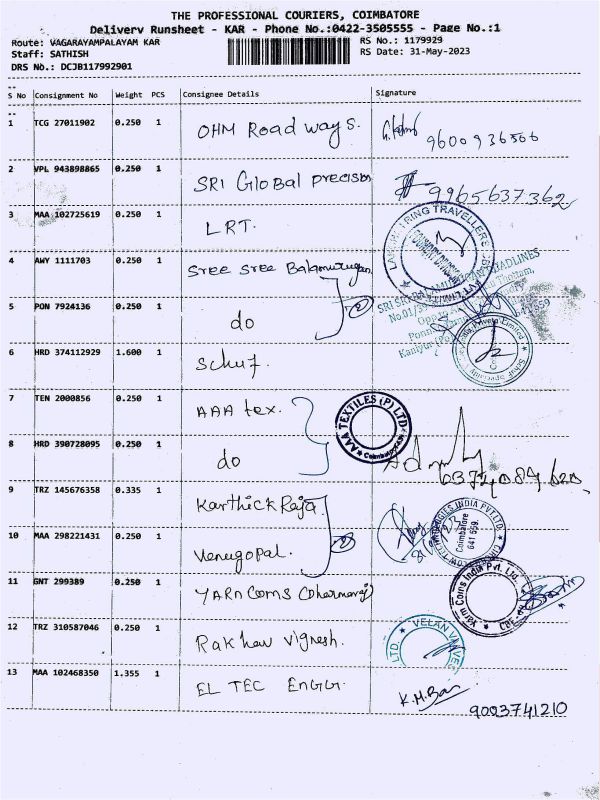 THE PROFESSIONAL COURIERS, COIMBATORE
Delivery Runsheet - KAR - Phone No.:0422-3505555 - Page No.:1
Route: VAGARAYAMPALAYAM KAR RS No.: 1179929
Staff: SATHISH RS Date: 31-May-2023
DRS No.: DCJB117992901
S No Consignment No Weight PCS Consignee Details Signature
1 TCG 27011902 0.250 1 OHM Road ways. 9600936566
2 VPL 943898865 0.250 1 SRI Global precision 9965637362
3 MAA 102725619 0.250 1 LRT.
4 AWY 1111703 0.250 1 Sree Sree Balamurugan
5 PON 7924136 0.250 1 do
6 HRD 374112929 1.600 1 Schuf.
7 TEN 2000856 0.250 1 AAA tex. AAA TEXTILES (P) LTD Coimbatore
8 HRD 390728095 0.250 1 do
9 TRZ 145676358 0.335 1 Karthick Raja. INDIA PVT.LTD.
10 MAA 298221431 0.250 1 Venugopal. Coimbatore 641 659.
11 GNT 299389 0.250 1 YARN COMS (Dharmaraj) Yarn Coms India Pvt. Ltd.
12 TRZ 310587046 0.250 1 Rakhav Vignesh. VELAN VALVES LTD.
13 MAA 102468350 1.355 1 EL TEC ENGG. K.M.
9003741210